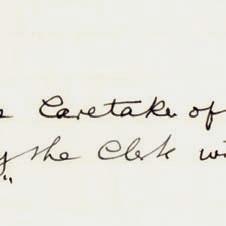 Caretaker of
the Clerk
"